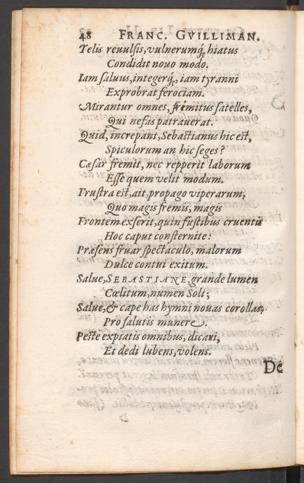 48 FRANC. GVILLIMAN.
Telis reuulsis, vulnerumq́, hiatus
Condidit nouo modo.
Iam saluus, integerq́, iam tyranni
Exprobrat ferociam.
Mirantur omnes, fremitus satelles,
Qui nefas patrauerat.
Quid, increpant, Sebastianus hic est,
Spiculorum an hic seges?
Cæsar fremit, nec repperit laborum
Esse quem velit modum.
Frustra est, ait, propago viperarum,
Quo magis fremis, magis
Frontem exserit, quin fustibus cruentũ
Hoc caput consternite:
Præsens fruar spectaculo, malorum
Dulce contui exitum.
Salue, SEBASTIANE, grande lumen
Cœlitum, numen Soli;
Salue, & cape has hymni nouas corollas,
Pro salutis munere.
Peste expiatis omnibus, dicaui,
Et dedi lubens, volens.
De